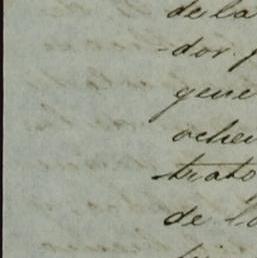 de la
dor
gene
oche
trato
de lo